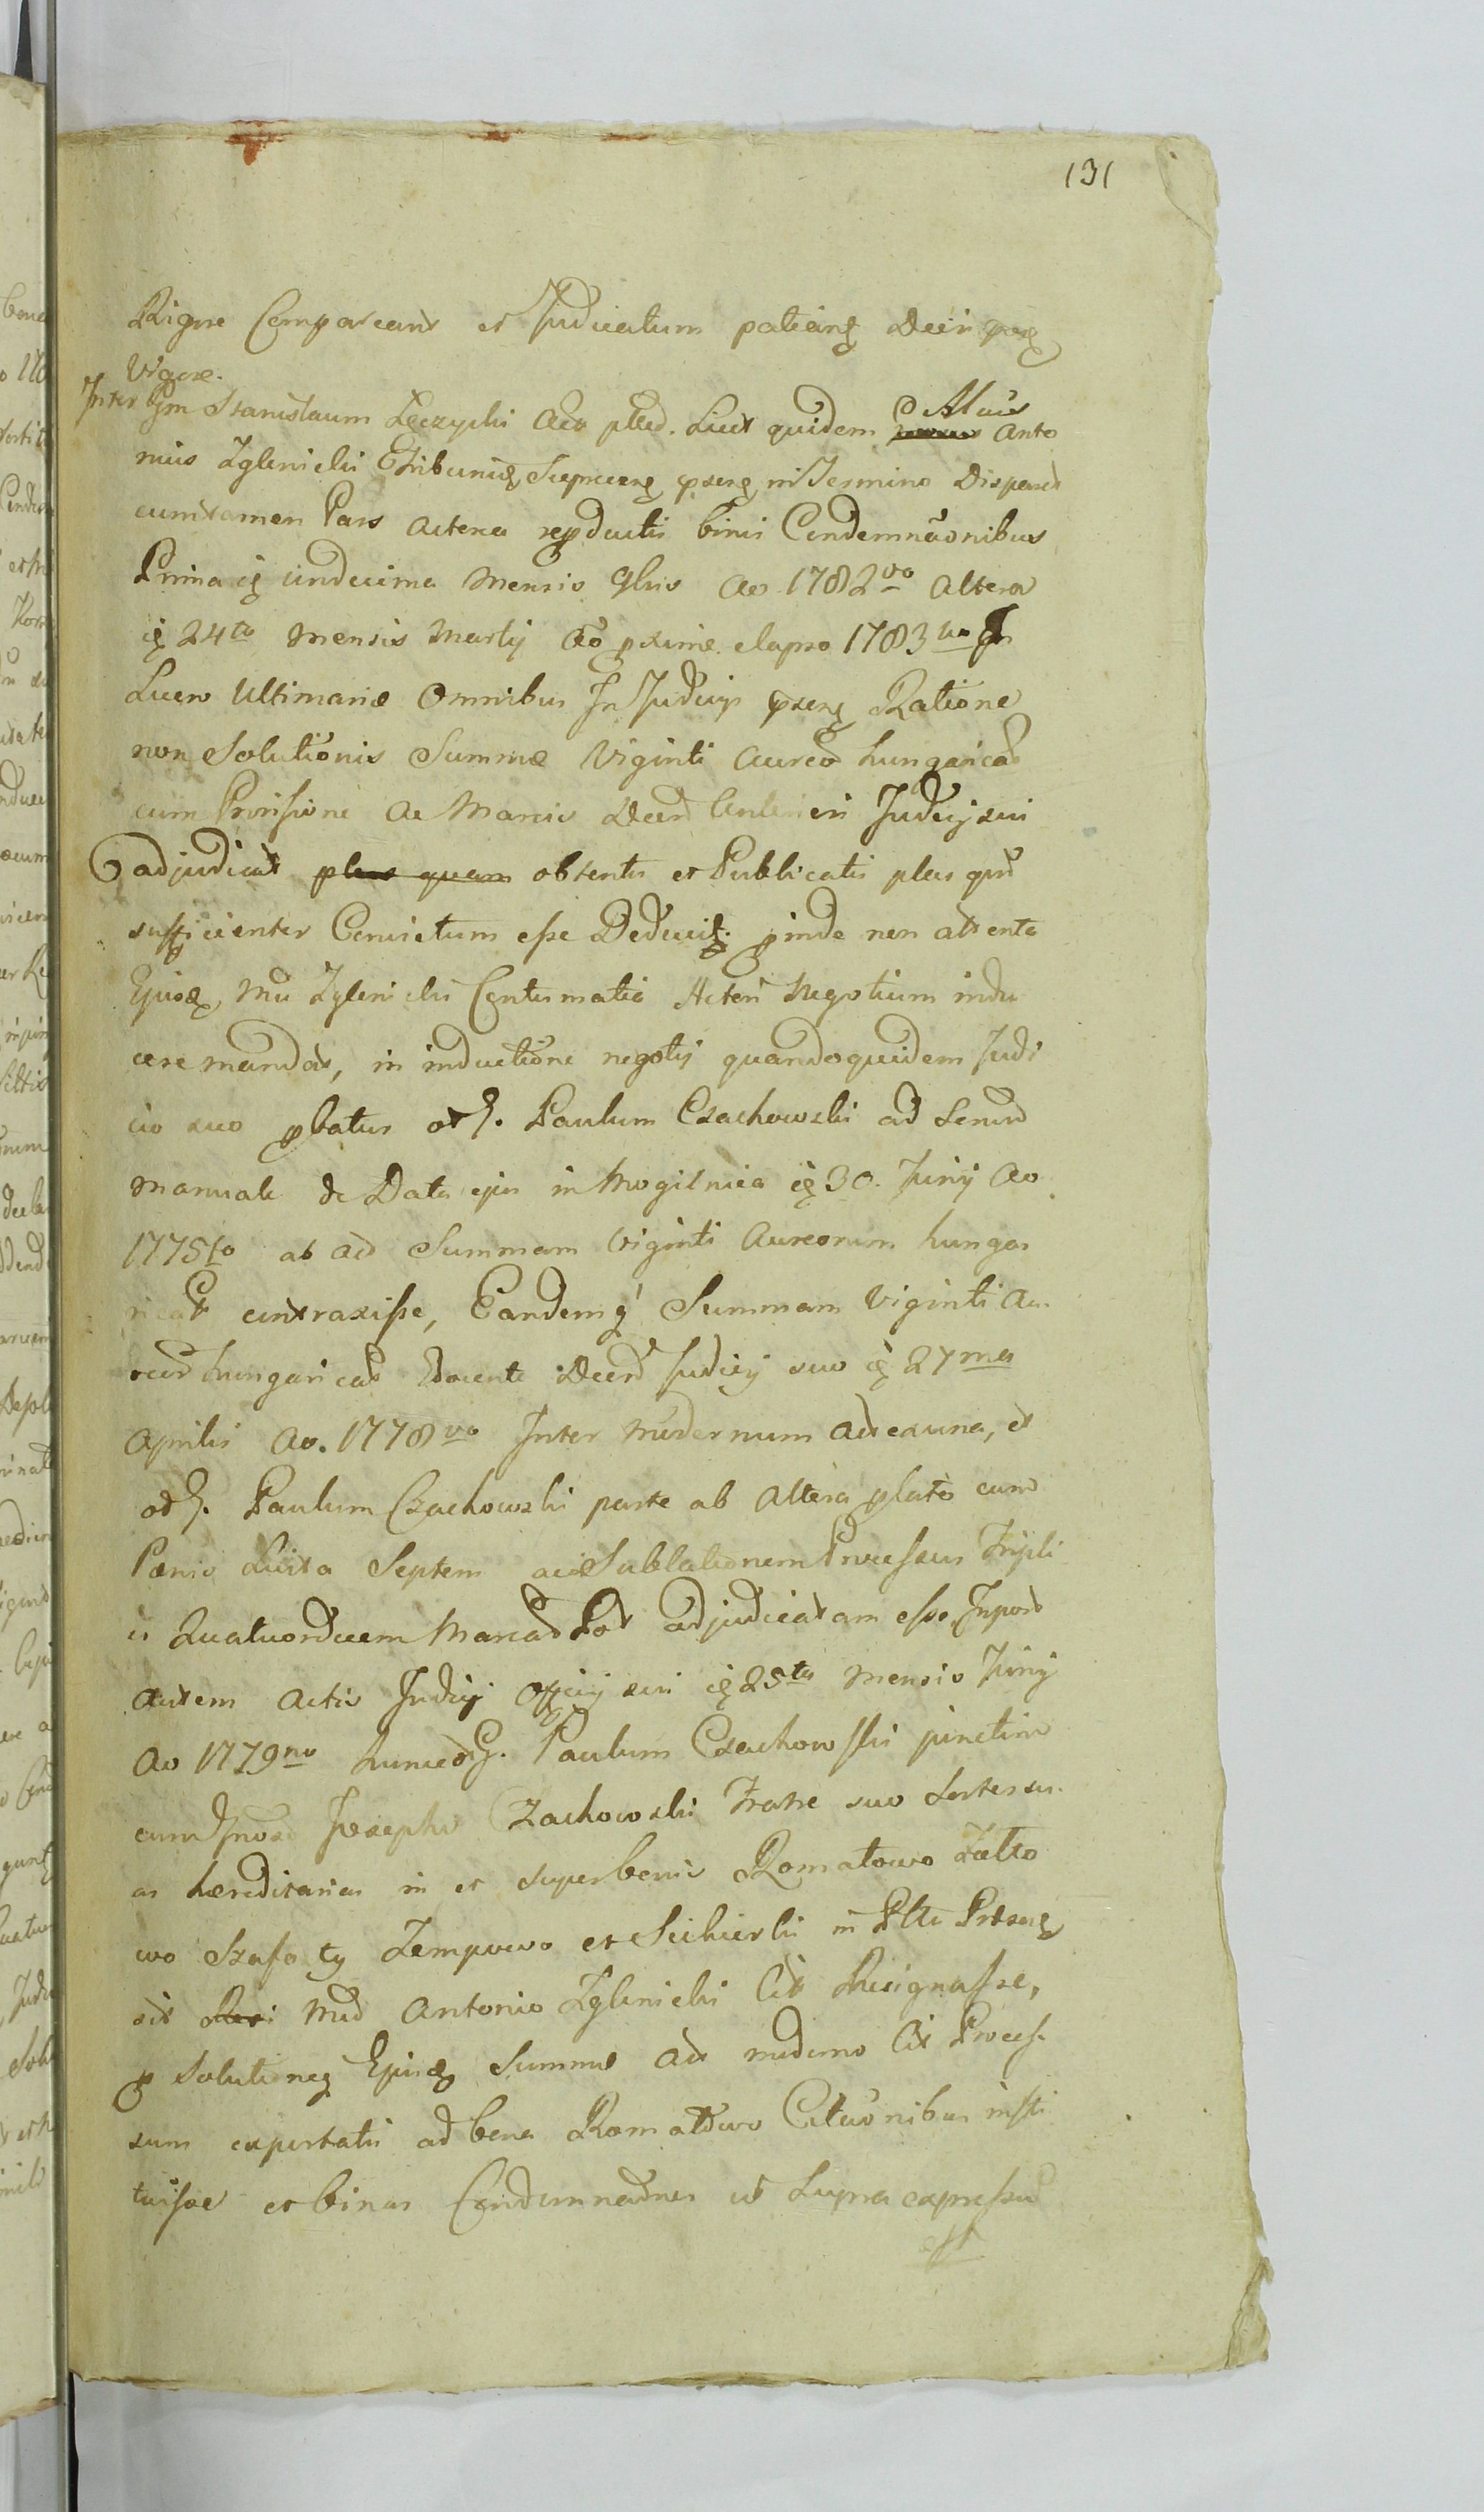 131
Rigore Compareant et Judicatum patiang Decri
Vigore.
Inter Gm Stanislaum Łęczycki Acto pted. Licet quidem Mcus Anto
nius Zglenicki Tribunus prng in Termino Disparet
cum tamen Pars Actorea repductis binis Condemnaonibus
Prima undecima Mensis 9bris Ao 1782do altera
24ta Mensis Martij Ao pxime elapso 1783tio In
Lucro Ultimariæ Omnibus In Judicijs prng Ratione
non Solutionis Summæ Viginti Aureor hungaricor
cum Provisione ac Marcis Decro Judicij sui
adjudicat plus quam obtentis et Publicatis plus qm
sufficienter Convictum esse Deducit. pinde non attenta
Ejusq Mci Zglenicki Contumatia Actori Negotium indu
cere mandat, in inductione negotij quandoquidem Judi
cio suo pbatur Paulum Czachowski ad Scriptum
Manuale de Data ejus in Mogilnica 30. Junij Ao
1775to ab ad Summam Viginti Aureorum hunga
ricar contraxisse, Eandemq Summam Viginti Au
reor hungaricar Docente Decro Judicij suo 27ma
Aprilis Ao. 1778vo Inter Modernum Act ex una, et
Paulum Czachowski parte ab Altera plato cum
Pænis Luita Septem Sublationem Processus Tripli
is Quatuordecem Marcar Pol adjudicatam esse, Inpost
autem Actis Judicij Officij sui 25ta Mensis Junij
Ao 1779no G. Paulum Czachowski junctim
cum Josepho Czachowski Fratre suo Sortes su
as hæreditarias in et super bonis Romatowo Żułto
wo Szafa ty Zempowo et Suchierki in Pltu
sit Mco Antonio Zglenicki Cit Resignasse,
p solutioneq Ejusq Summæ Act moderno Cit Proces
sum exportatis ad bona Romatowo Citaonibus insti
tuisse et binas Condemnaones ut Supra expressum
est